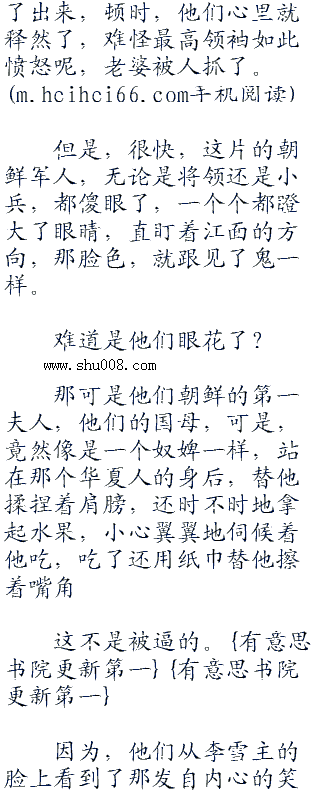 了出来，顿时，他们心里就
释然了，难怪最高领袖如此
愤怒呢，老婆被人抓了。
(m.hcihci66.com手机阅读)
但是，很快，这片的朝
鲜军人，无论是将领还是小
兵，都傻眼了，一个个都瞪
大了眼睛，直盯着江面的方
向，那脸色，就跟见了鬼一
样。
难道是他们眼花了？
www.shu008.com
那可是他们朝鲜的第一
夫人，他们的国母，可是，
竟然像是一个奴婢一样，站
在那个华夏人的身后，替他
揉捏着肩膀，还时不时地拿
起水果，小心翼翼地伺候着
他吃，吃了还用纸巾替他擦
着嘴角
这不是被逼的。{有意思
书院更新第一}{有意思书院
更新第一}
因为，他们从李雪主的
脸上看到了那发自内心的笑